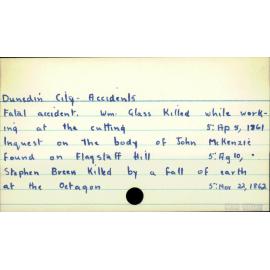 Dunedin City - Accidents
Fatal accident. Wm. Glass Killed while work-
ing at the cutting 5. Ap 5, 1861
Inquest on the body of John McKenzie
Found on Flagstaff Hill 5. Ag 10, "
Stephen Breen Killed by a fall of earth
at the Octagon 5. Mar 22, 1862